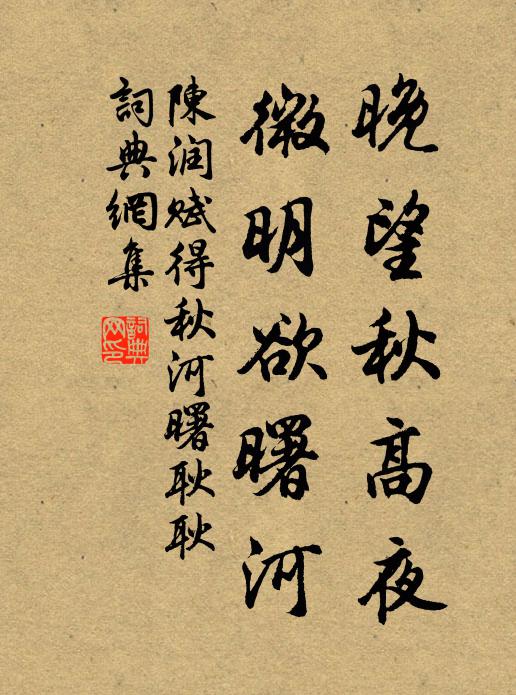 晚望秋高夜
微明欲曙河
陳润赋得秋河曙耿耿
詞典網集
詞典网印